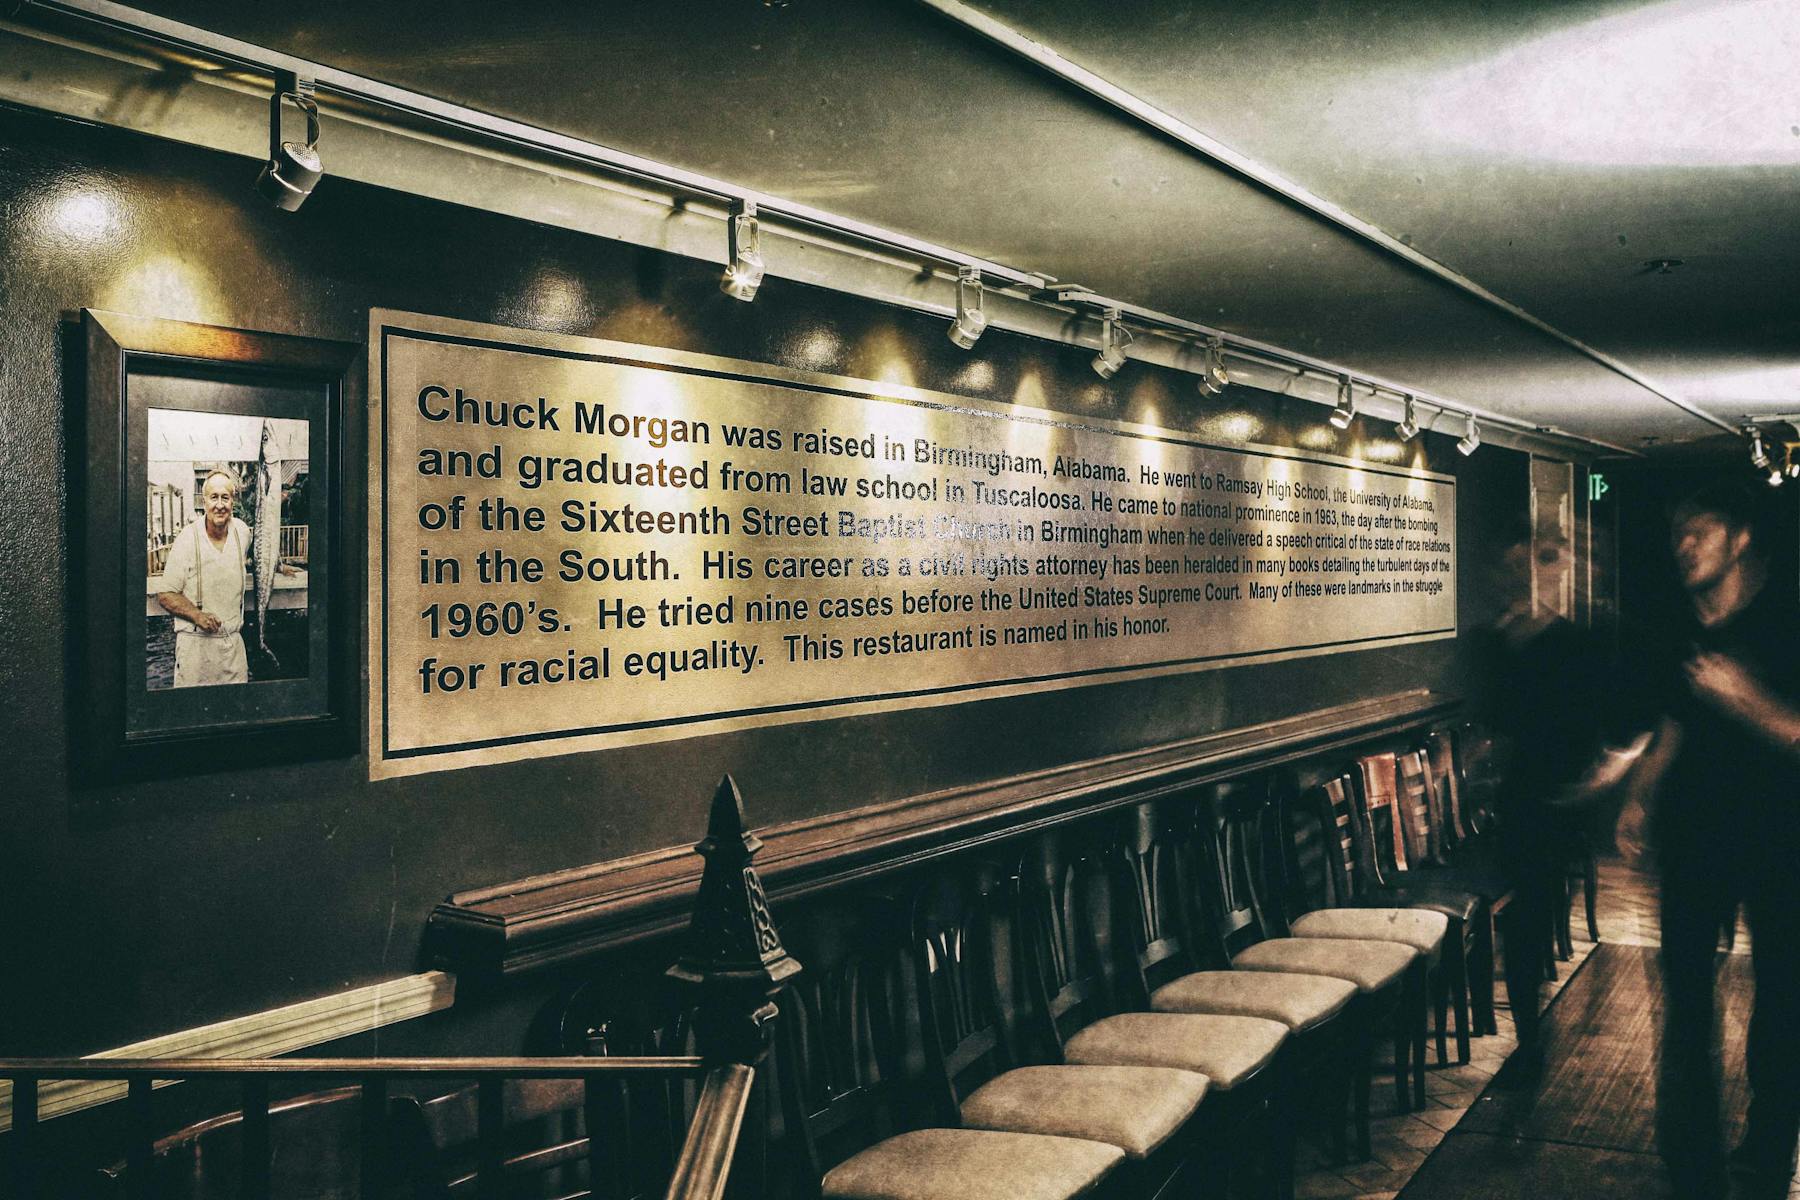 Chuck Morgan was raised in Birmingham, Alabama. He went to Ramsay High School, the University of Alabama,
and graduated from law school in Tuscaloosa. He came to national prominence in 1963, the day after the bombing
of the Sixteenth Street Baptist Church in Birmingham when he delivered a speech critical of the state of race relations
in the South. His career as a civil rights attorney has been heralded in many books detailing the turbulent days of the
1960's. He tried nine cases before the United States Supreme Court. Many of these were landmarks in the struggle
for racial equality. This restaurant is named in his honor.